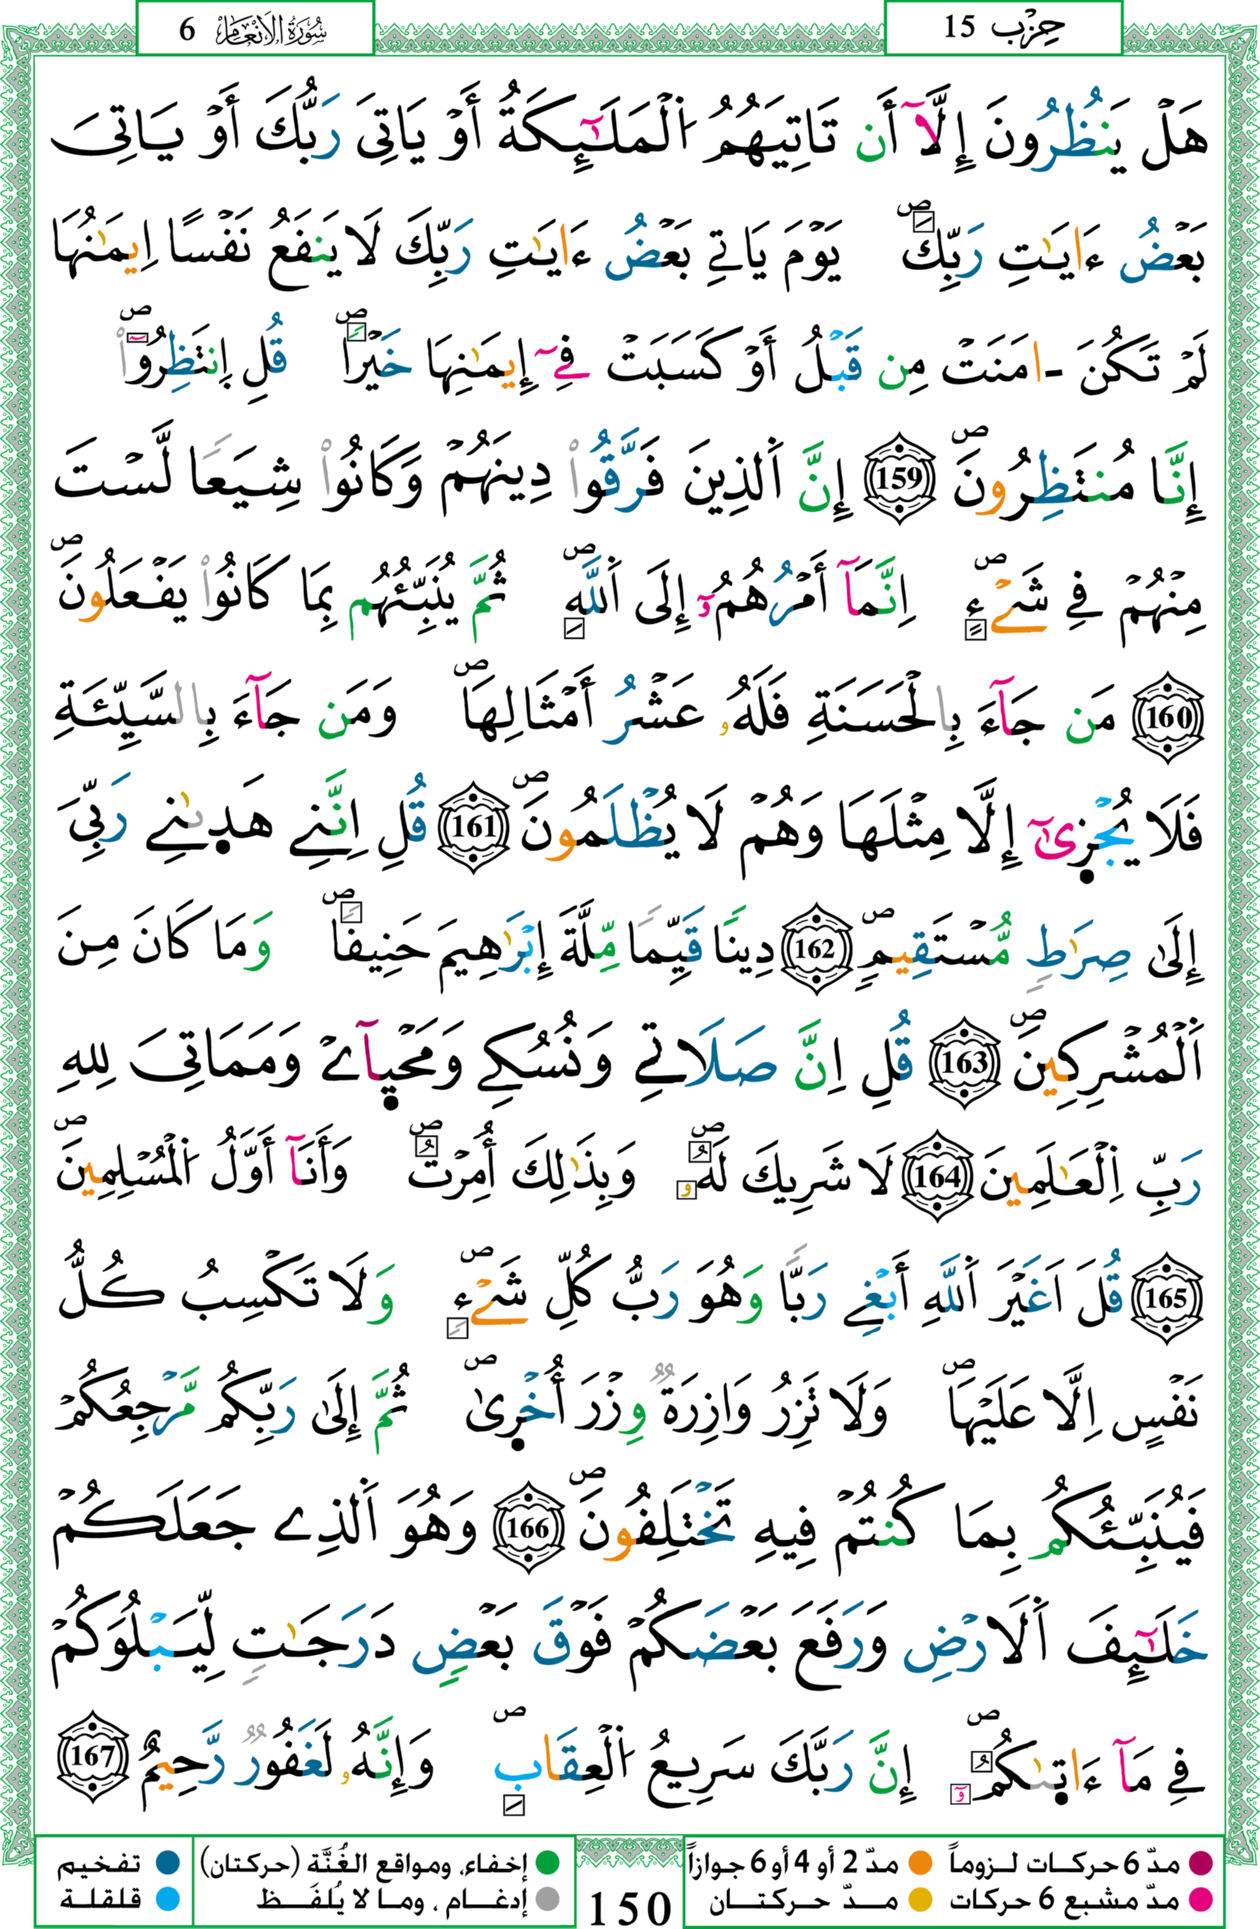 حِزْب 15
سُورَةُ الأَنْعَام 6
هَلْ يَنظُرُونَ إِلَّآ أَن تَاتِيَهُمُ اُ۬لْمَلَٰٓئِكَةُ أَوْ يَاتِيَ رَبُّكَ أَوْ يَاتِيَ
بَعْضُ ءَايَٰتِ رَبِّكَۖ يَوْمَ يَاتِے بَعْضُ ءَايَٰتِ رَبِّكَ لَا يَنفَعُ نَفْساً اِيمَٰنُهَا
لَمْ تَكُنَ اٰمَنَتْ مِن قَبْلُ أَوْ كَسَبَتْ فِےٓ إِيمَٰنِهَا خَيْراٗۖ قُلِ اِ۪نتَظِرُوٓاْۖ
إِنَّا مُنتَظِرُونَۖ 159 إِنَّ اَ۬لذِينَ فَرَّقُواْ دِينَهُمْ وَكَانُواْ شِيَعاٗ لَّسْتَ
مِنْهُمْ فِے شَےْءٍۖ اِنَّمَآ أَمْرُهُمُۥٓ إِلَى اَ۬للَّهِۖ ثُمَّ يُنَبِّئُهُم بِمَا كَانُواْ يَفْعَلُونَۖ
160 مَن جَآءَ بِالْحَسَنَةِ فَلَهُۥ عَشْرُ أَمْثَالِهَاۖ وَمَن جَآءَ بِالسَّيِّئَةِ
فَلَا يُجْز۪يٰٓ إِلَّا مِثْلَهَا وَهُمْ لَا يُظْلَمُونَۖ 161 قُلِ اِنَّنِے هَد۪يٰنِے رَبِّيَ
إِلَىٰ صِرَٰطٖ مُّسْتَقِيمٖۖ 162 دِيناٗ قَيِّماٗ مِّلَّةَ إِبْرَٰهِيمَ حَنِيفاٗۖ وَمَا كَانَ مِنَ
اَ۬لْمُشْرِكِينَۖ 163 قُلِ اِنَّ صَلَاتِے وَنُسُكِے وَمَحْي۪آےْ وَمَمَاتِيَ لِلهِ
رَبِّ اِ۬لْعَٰلَمِينَ 164 لَا شَرِيكَ لَهُۥۖ وَبِذَٰلِكَ أُمِرْتُۖ وَأَنَآ أَوَّلُ اُ۬لْمُسْلِمِينَۖ
165 قُلَ اَغَيْرَ اَ۬للَّهِ أَبْغِے رَبّاٗ وَهُوَ رَبُّ كُلِّ شَےْءٖۖ وَلَا تَكْسِبُ كُلُّ
نَفْسٍ اِلَّا عَلَيْهَاۖ وَلَا تَزِرُ وَازِرَةٞ وِزْرَ أُخْر۪يٰۖ ثُمَّ إِلَىٰ رَبِّكُم مَّرْجِعُكُمْ
فَيُنَبِّئُكُم بِمَا كُنتُمْ فِيهِ تَخْتَلِفُونَۖ 166 وَهُوَ اَ۬لذِے جَعَلَكُمْ
خَلَٰٓئِفَ اَ۬لَارْضِ وَرَفَعَ بَعْضَكُمْ فَوْقَ بَعْضٖ دَرَجَٰتٖ لِّيَبْلُوَكُمْ
فِے مَآ ءَات۪يٰكُمُۥٓۖ إِنَّ رَبَّكَ سَرِيعُ اُ۬لْعِقَابِۖ وَإِنَّهُۥ لَغَفُورٞ رَّحِيمٌ 167
مدّ 6 حركات لـزوماً مدّ 2 أو 4 أو 6 جوازاً
مدّ مشبع 6 حركات مـدّ حركتـان
إخفاء، ومواقع الغُنَّة (حركتان) تفخيم
إدغـام ، ومـا لا يُلفَـظ قلقلة
150